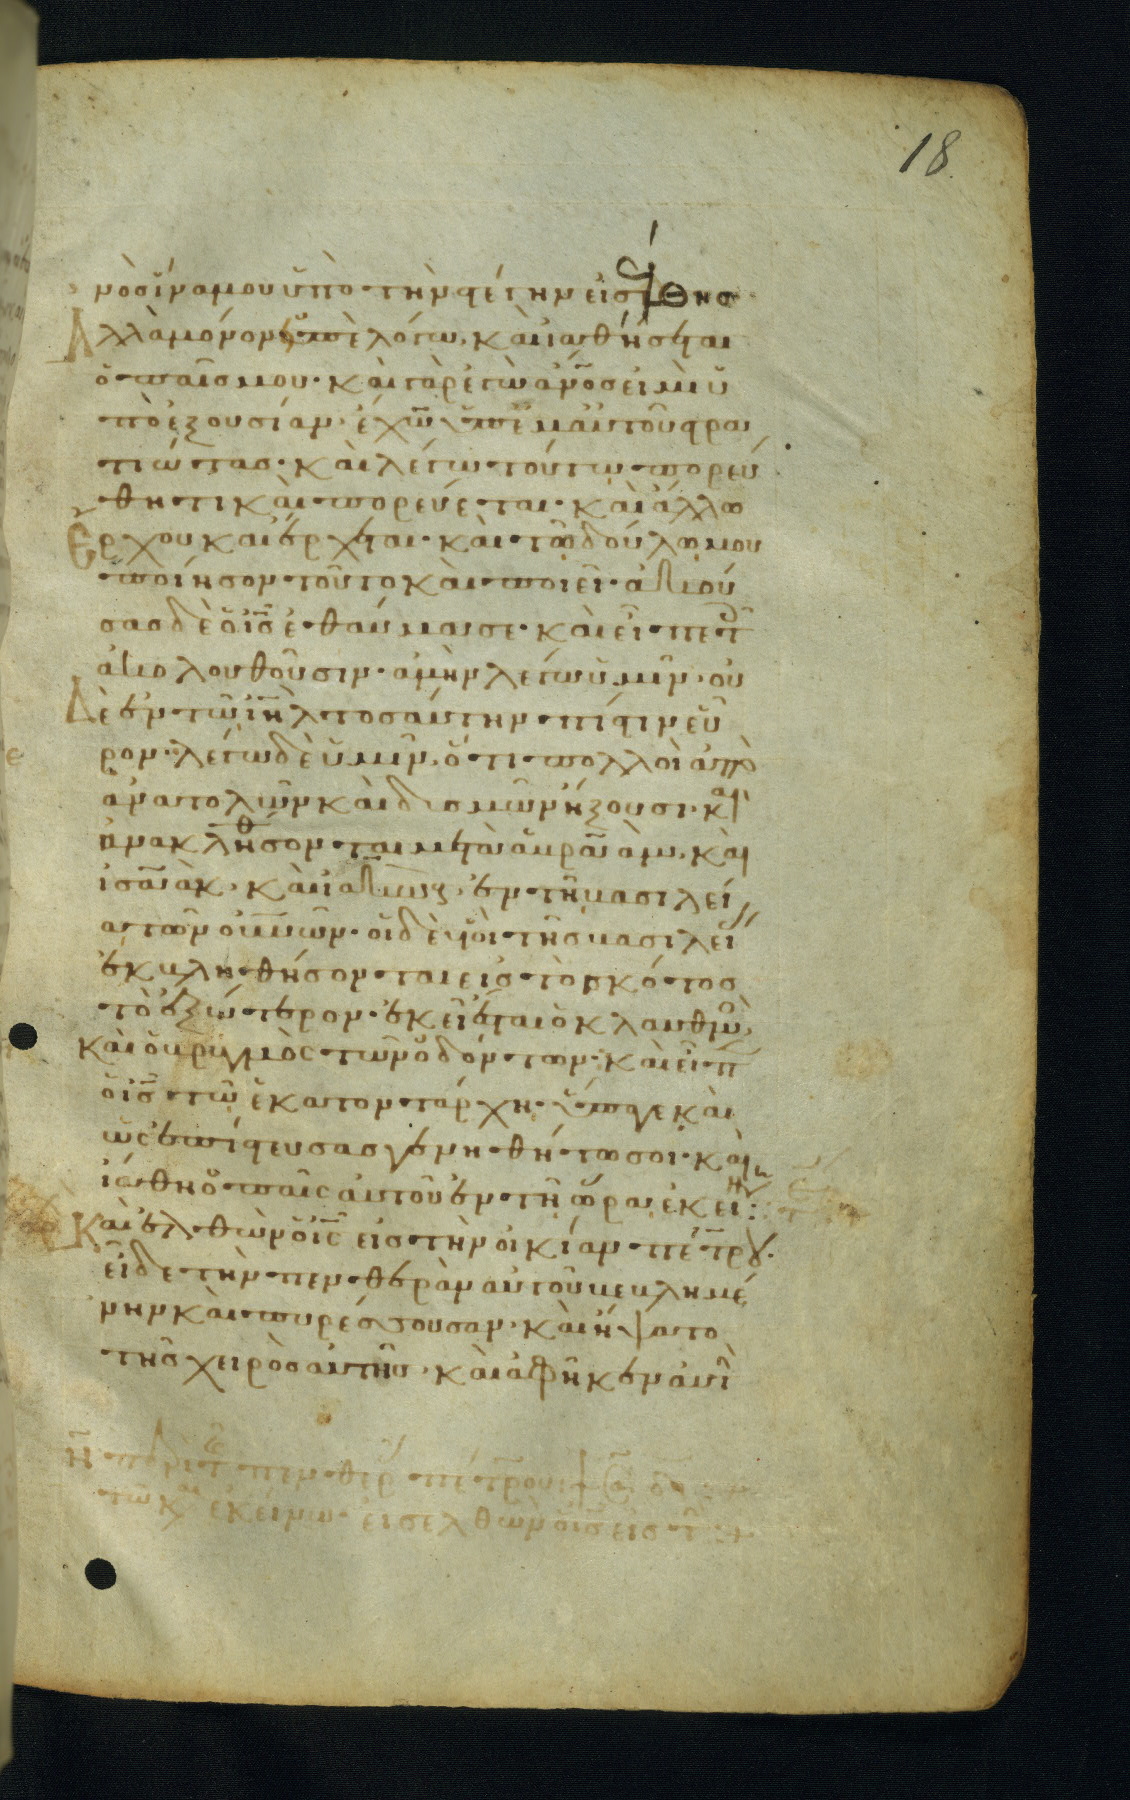 18
νὸσ ἵνα μου ὑπὸ τὴν στέγην εἰσέλθησ
Ἀλλὰ μόνον εἰπὲ λόγω, καὶ ἰαθήσεται
ὁ παῖσ μου· καὶ γὰρ ἐγὼ ἄν̅οσ εἰμὶ ὑ
πὸ ἐξουσίαν· ἔχων ὑπ' ἐμαυτοῦ στρα
τιώτασ· καὶ λέγω τούτω πορεύ
θητι καὶ πορεύεται· καὶ ἄλλω
Ἔρχου καὶ ἔρχεται· καὶ τῶ δούλω μου
ποίησον τοῦτο καὶ ποιεῖ· ἀκού
σασ δὲ ὁ ι̅σ̅ ἐθαύμασε· καὶ εἶπε τ
ἀκολουθοῦσιν· ἀμὴν λέγω ὑμῖν· οὐ
Δὲ ἐν τῶ ι̅η̅λ̅ τοσαύτην πίστιν εὗ
ρον· λέγω δὲ ὑμῖν, ὅτι πολλοὶ ἀπὸ
ἀνατολῶν καὶ δυσμῶν ἥξουσι· καὶ
ἀνακλιθήσονται μετὰ ἀβραὰμ, καὶ
ἰσαὰκ, καὶ ἰακὼβ, ἐν τῆ βασιλεί
α τῶν ου̅νῶν· οἱ δὲ υἱοὶ τῆσ βασιλεί
ἐκβληθήσονται εἰσ τὸ σκότοσ
τὸ ἐξώτερον· ἐκεῖ ἔσται ὁ κλαυθμὸ
καὶ ὁ βρυγμὸσ τῶν ὀδόντων· καὶ εἶπ
ὁ ι̅σ̅ τῶ ἑκατοντάρχη· ὕπαγε καὶ
ὡσ ἐπίστευσασ γενηθήτω σοι· καὶ
ἰάθη ὁ παῖσ αὐτοῦ ἐν τῆ ὥρα ἐκείνη:
Καὶ ἐλθὼν ὁ ι̅σ̅ εἰσ τὴν οἰκίαν πέτρου·
εἶδε τὴν πενθερὰν αὐτοῦ βεβλημέ
νην καὶ πυρέσσουσαν· καὶ ἥψατο
τῆσ χειρὸσ αὐτῆσ· καὶ ἀφῆκεν αὐτὴ
τῶ κ ἐκείνω· εἰσελθὼν ὁ ι̅σ̅ εἰσ τ